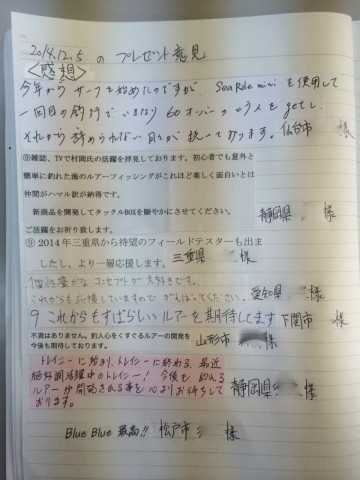 2014.12.5 の プレゼント意見
<感想>
今年からサーフを始めたのですが、SeaRide miniを使用して
一回目の釣行でいきなり60オーバーのヒラメをgetし、
それから辞められない日々が続いております。仙台市 様
⑨雑誌、TVで村岡氏の活躍を拝見しております。初心者でも意外と
簡単に釣れた海のルアーフィッシングがこれほど楽しく面白いとは
仲間がハマル訳が納得です。
新商品を開発してタックルBOXを賑やかにさせてください。
ご活躍をお祈り致します。 静岡県 様
⑨2014年三重県から待望のフィールドテスターも出ま
したし、より一層応援します。三重県 様
個性豊かなコンセプトが大好きです。
これからも応援していますのでがんばってください。愛知県 様
9 これからもすばらしいルアーを期待してます 下関市 様
不満はありません。釣人心をくすぐるルアーの開発を
今後も期待しております。 山形市 様
トレイシーに始まり、トレイシーに終わる、最近
絶好調活躍中のトレイシー！今後も釣れる
ルアーが開発される事を心よりお待ちして
おります。 静岡県 様
Blue Blue 最高!! 松戸市 様